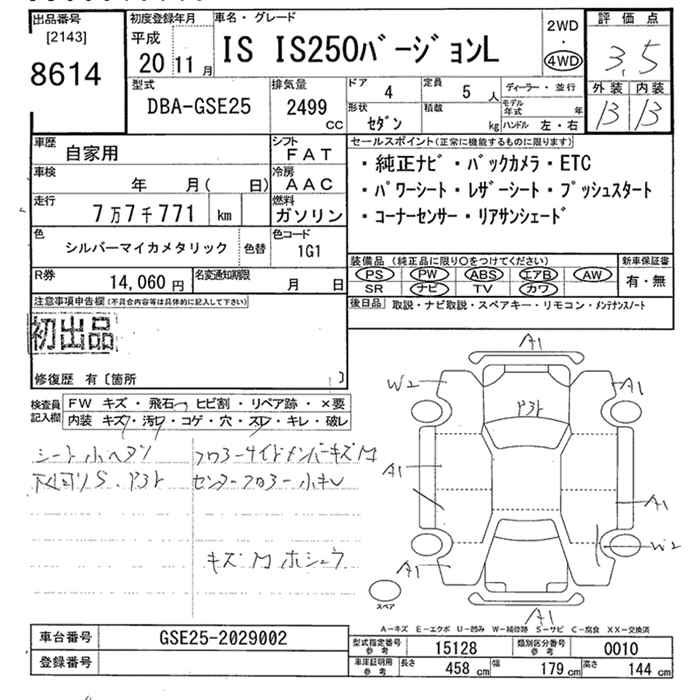 出品番号
[2143]
8614
初度登録年月
平成
20 11月
車名・グレード
IS IS250バージョンL
2WD
・
4WD
評価点
3.5
外装 内装
B B
型式
DBA-GSE25
排気量
2499
CC
ドア 4
定員 5 人
ディーラー・並行
形状 セダン
積載 kg
モデル年式 年
ハンドル 左・右
車歴 自家用
シフト FAT
車検 年 月( 日)
冷房 AAC
走行 7万7千771 km
燃料 ガソリン
色 シルバーマイカメタリック
色替
色コード 1G1
R券 14,060円
名変通知期限 月 日
セールスポイント(正常に機能するものに限ります)
・純正ナビ・バックカメラ・ETC
・パワーシート・レザーシート・プッシュスタート
・コーナーセンサー・リアサンシェード
装備品 (純正品に限り○をつけてください)
PS PW ABS エアB AW
SR ナビ TV カワ
新車保証書
有・無
後日品 取説・ナビ取説・スペアキー・リモコン・メンテナンスノート
注意事項申告欄(不具合内容等は具体的に記入して下さい)
初出品
修復歴 有〔箇所 〕
検査員記入欄
FW キズ・飛石・ヒビ割・リペア跡・×要
内装 キズ・汚れ・コゲ・穴・スレ・キレ・破レ
シート小ヘタリ
下回りS.アヨト
フロアーサイドメンバーキズM
センターフロアー小キレ
キズM ホシュウ
A1
W2
A1
アヨト
A1
A1
A1
W2
A1
スペア
A1
A-キズ E-エクボ U-凹み W-補修跡 S-サビ C-腐食 XX-交換済
車台番号 GSE25-2029002
登録番号
型式指定番号 参考 15128
類別区分番号 参考 0010
車庫証明用 参考 長さ 458 cm 幅 179 cm 高さ 144 cm